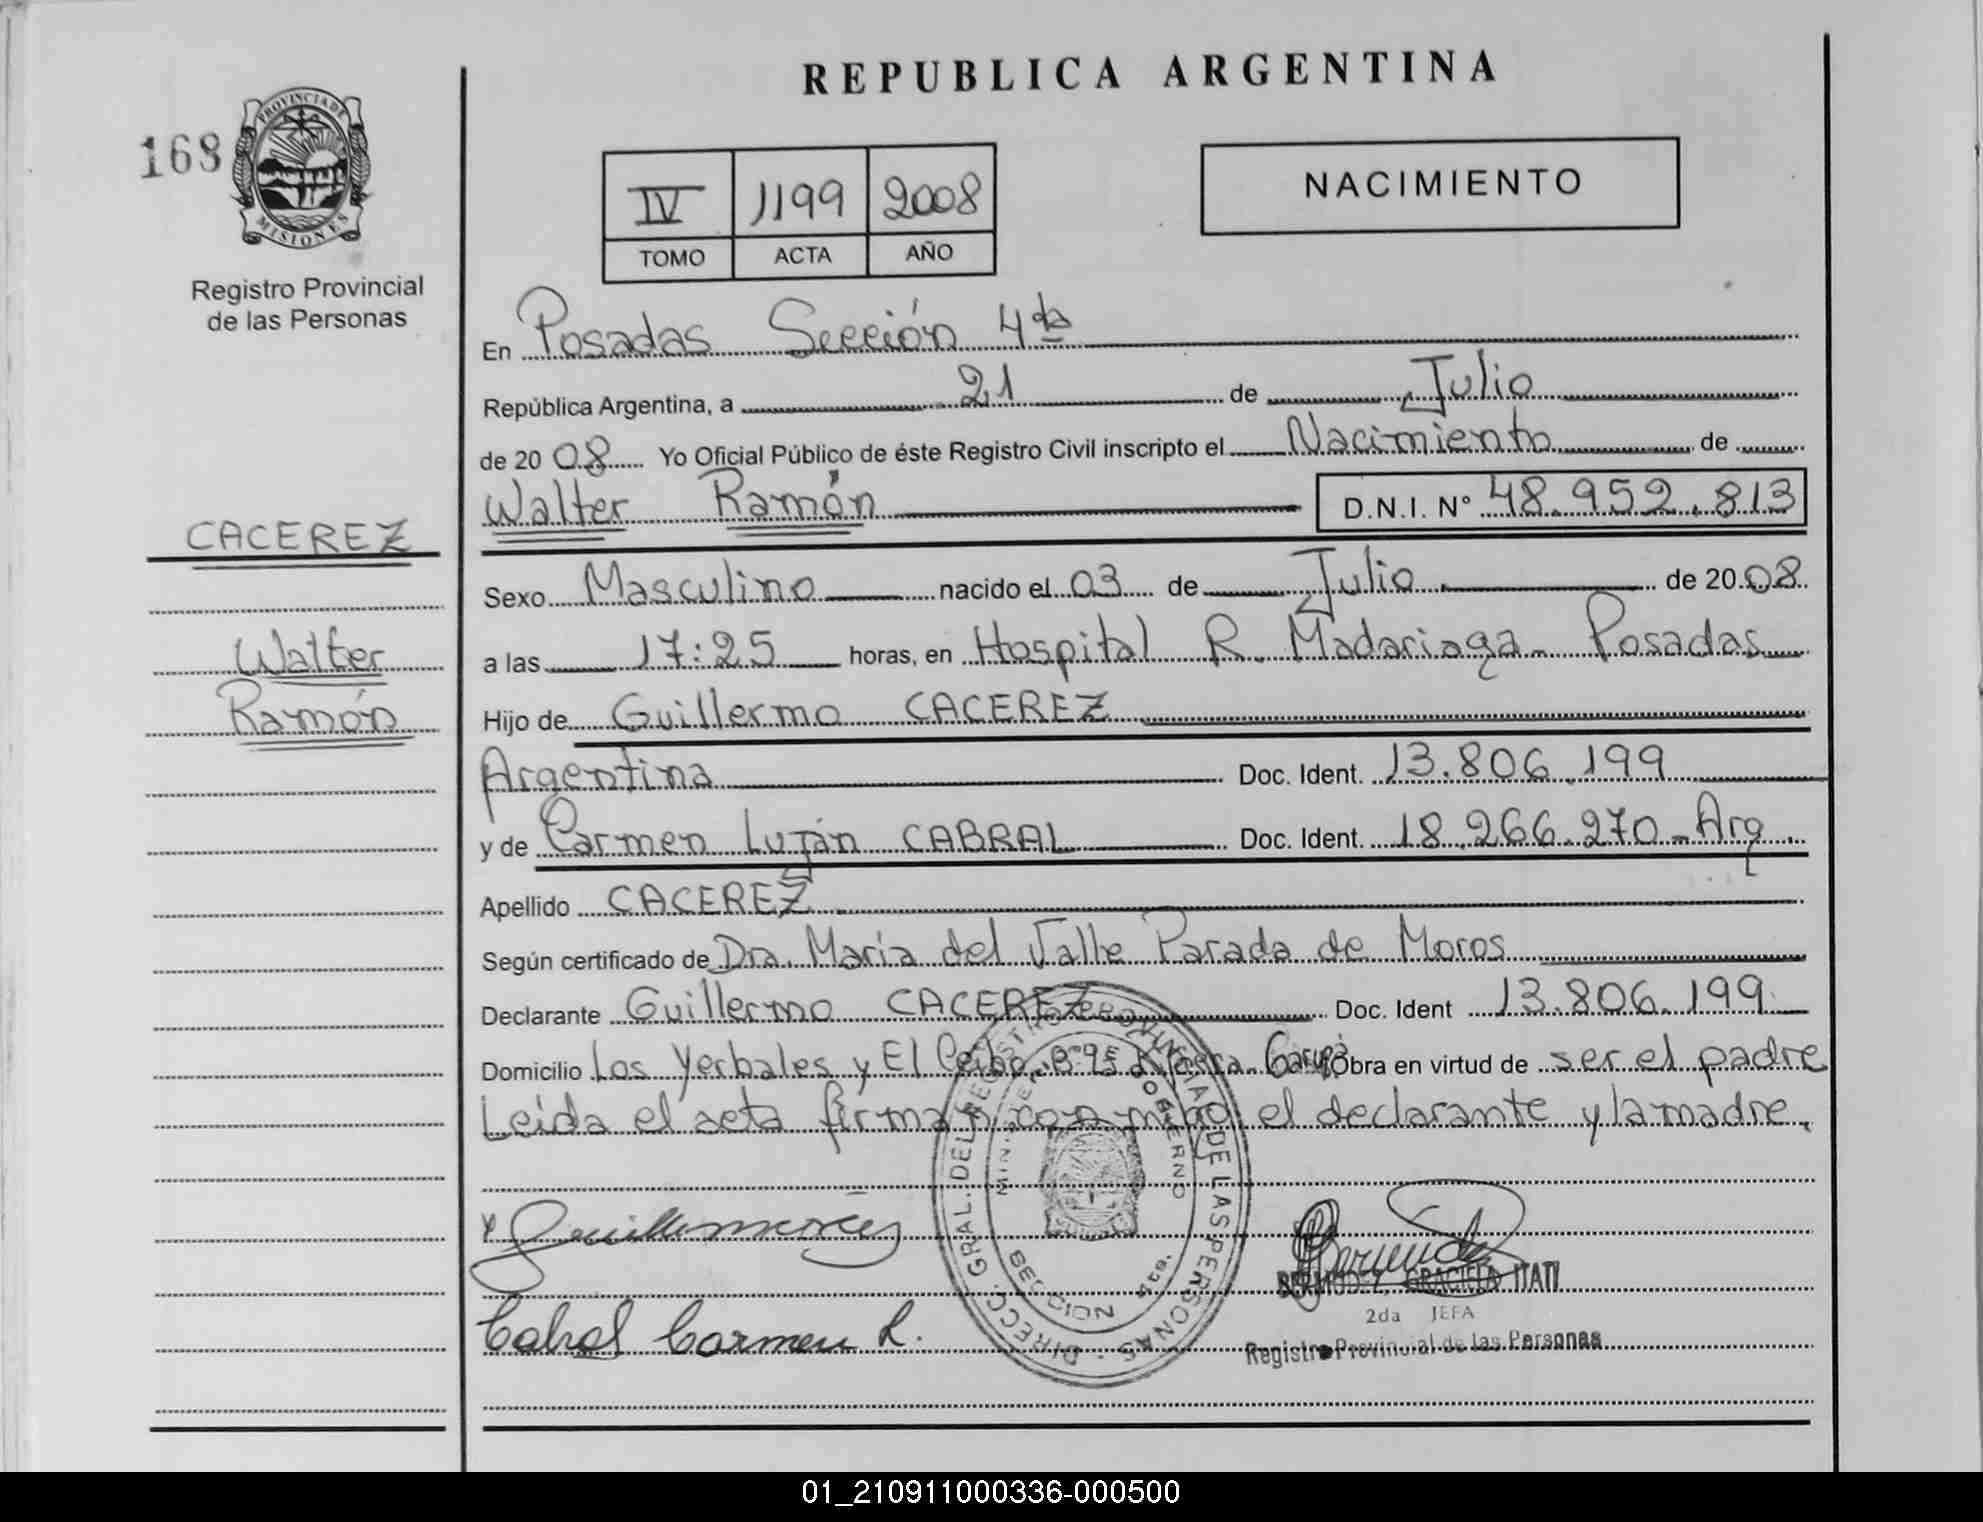 REPUBLICA ARGENTINA
168
PROVINCIA DE
MISIONES
Registro Provincial
de las Personas
IV 1199 2008
TOMO ACTA AÑO
NACIMIENTO
En Posadas Sección 4ta
República Argentina, a 21 de Julio
de 2008 Yo Oficial Público de éste Registro Civil inscripto el Nacimiento de
Walter Ramón D.N.I. N° 48.952.813
CACEREZ
Walter
Ramón
Sexo Masculino nacido el 03 de Julio de 2008
a las 17:25 horas, en Hospital R. Madariaga - Posadas
Hijo de Guillermo CACEREZ
Argentina Doc. Ident. 13.806.199
y de Carmen Luján CABRAL Doc. Ident. 18.266.270 - Arg
Apellido CACEREZ
Según certificado de Dra. Maria del Valle Parada de Moros
Declarante Guillermo CACEREZ Doc. Ident 13.806.199
Domicilio Los Yerbales y El Ceibo Garupá Obra en virtud de ser el padre
Leida el acta firman conmigo el declarante y la madre.
DIRECC. GRAL. DEL REGISTRO PROVINCIAL DE LAS PERSONAS
Cabral Carmen L.
GRACIELA ITATI
2da JEFA
Registro Provincial de las Personas
01_210911000336-000500